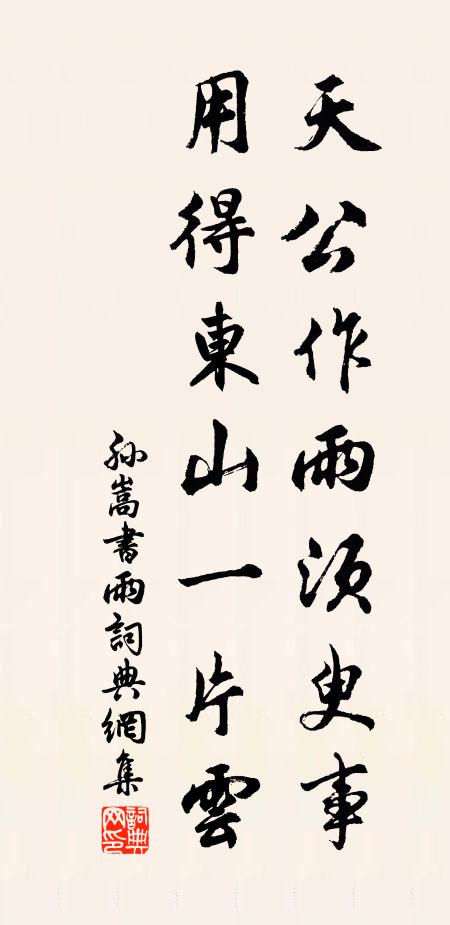 天公作雨須臾事
用得東山一片雲
孫嵩書雨詞典網集
詞典网印